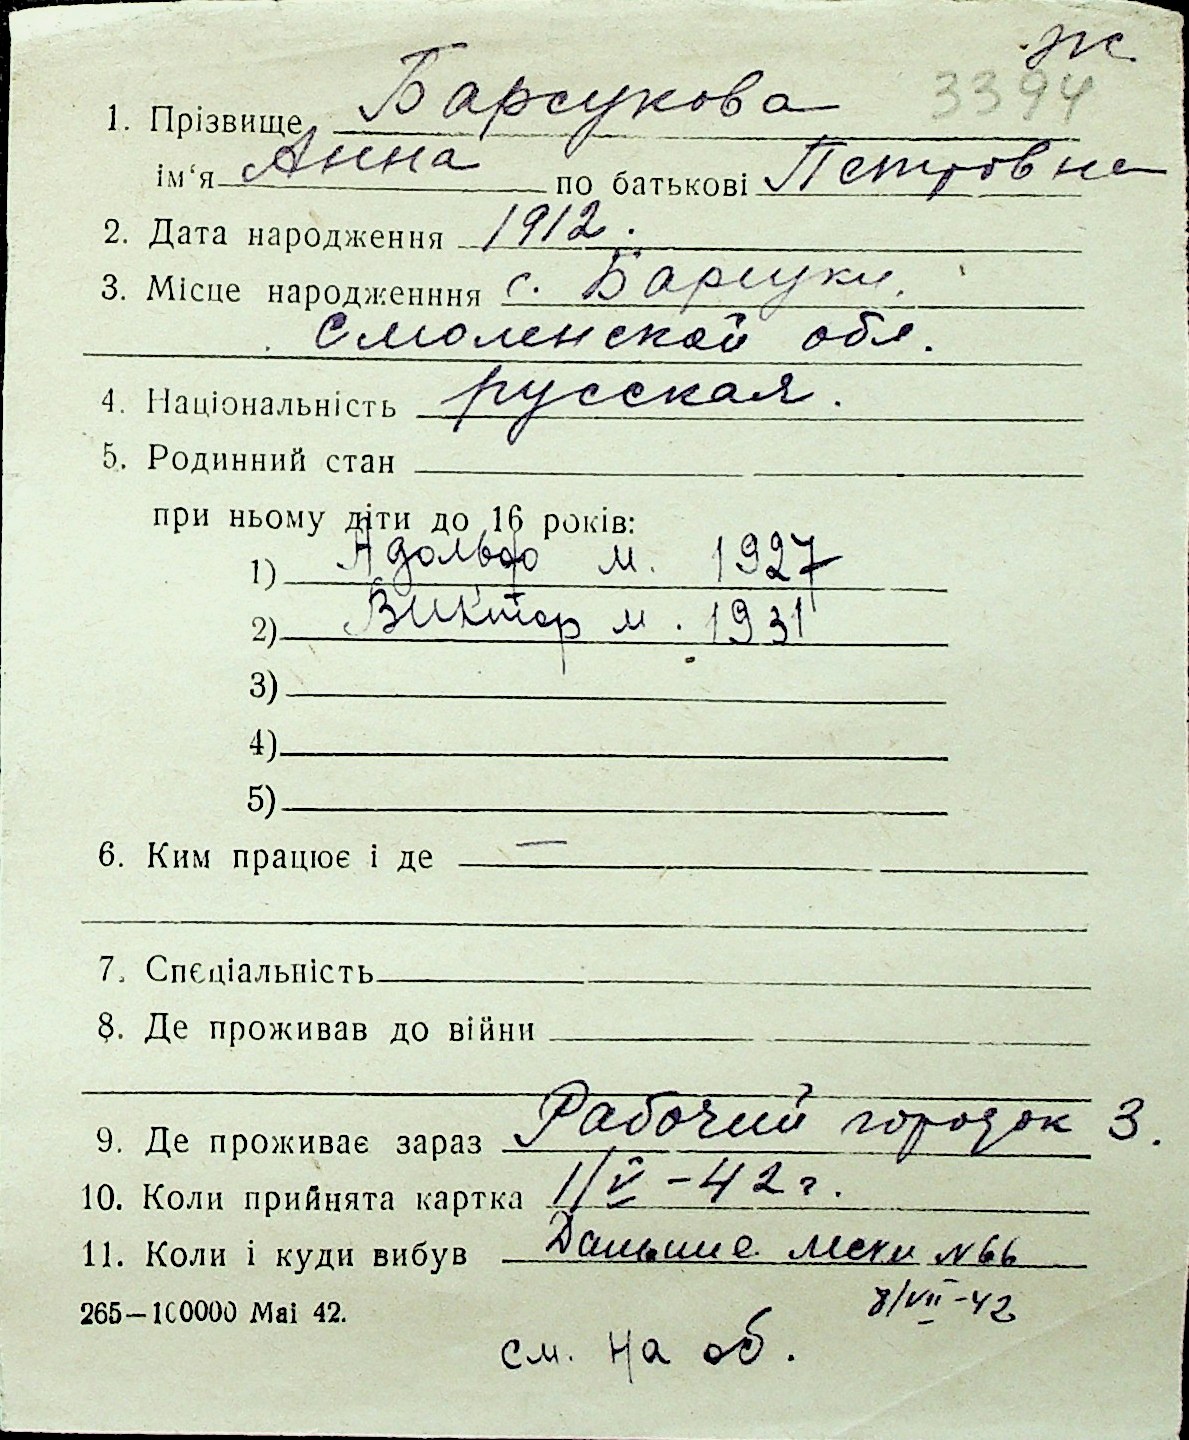 ж
3394
1. Прізвище Барсукова
ім‘я Анна по батькові Петровна
2. Дата народження 1912.
3. Місце народженння с. Барсуки,
Смоленской обл.
4. Національність русская.
5. Родинний стан
при ньому діти до 16 років:
1) Адольф м. 1927
2) Виктор м. 1931
3)
4)
5)
6. Ким працює і де —
7. Спєціальність
8. Де проживав до війни
9. Де проживає зараз Рабочий городок 3.
10. Коли прийнята картка 1/V – 42 г.
11. Коли і куди вибув N 66
8/VII - 42
265—100000 Mai 42.
см. на об.